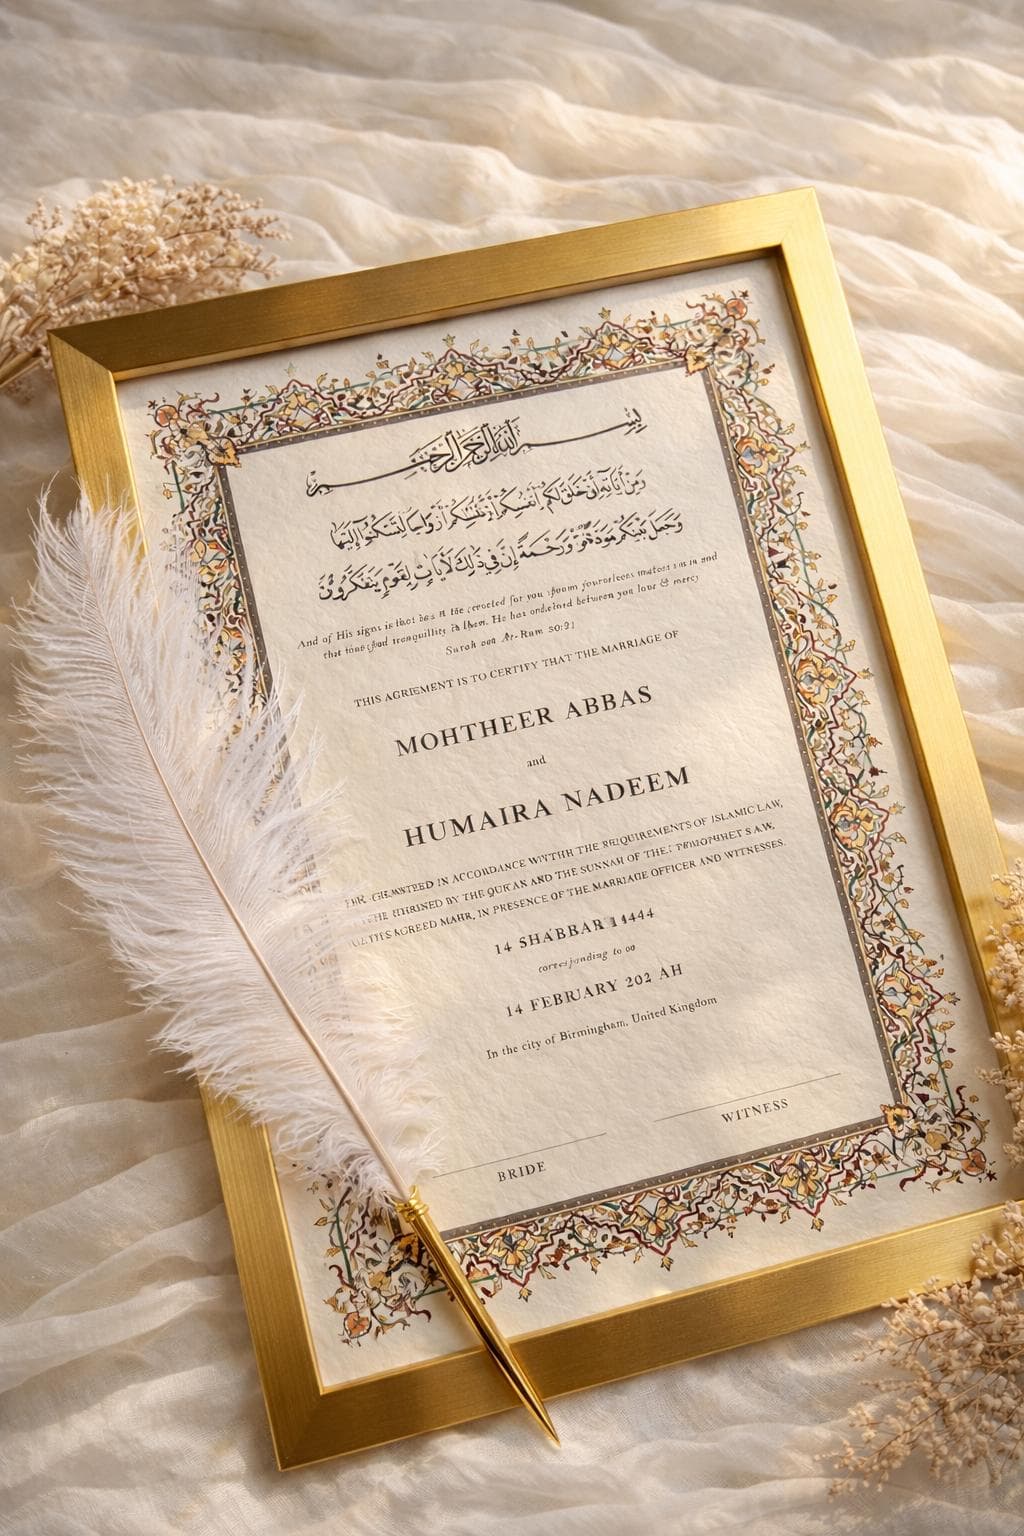 بسم الله الرحمن الرحيم
وَمِنْ آيَاتِهِ أَنْ خَلَقَ لَكُم أَنفُسِكُم أَزْوَاجًا لِتَسْكُنُوا إِلَيْهَا
وَجَعَلَ بَيْنَكُم مَوَدَّةً وَرَحْمَةً إِنَّ فِي ذَلِكَ لَآيَاتٍ لِقَوْمٍ يَتَفَكَّرُونَ
And of His signs is that has the for you
that tranquillity in them. He has ordained between you love & mercy
Surah Ar-Rum 30:21
THIS AGREEMENT IS TO CERTIFY THAT THE MARRIAGE OF
MOHTHEER ABBAS
and
HUMAIRA NADEEM
IN ACCORDANCE THE REQUIREMENTS OF ISLAMIC LAW,
BY THE QURAN AND THE SUNNAH OF THE S.A.W,
AGREED MAHR, IN PRESENCE OF THE MARRIAGE OFFICER AND WITNESSES.
14 SHABBAR 14444
corresponding to on
14 FEBRUARY 202 AH
In the city of Birmingham, United Kingdom
WITNESS
BRIDE